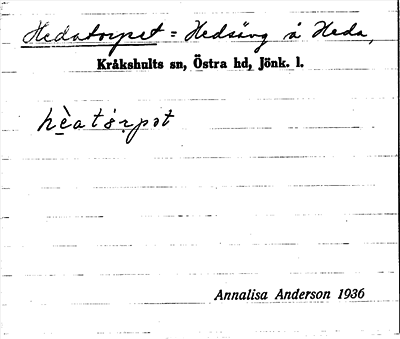 Hedatorpet = Hedsäng å Heda,
Kråkshults sn, Östra hd, Jönk. l.
Annalisa Anderson 1936